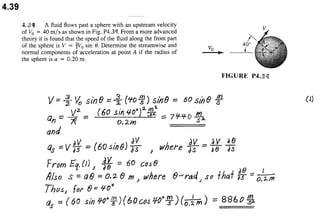 4.39
4.39 A fluid flows past a sphere with an upstream velocity
of V₀ = 40 m/s as shown in Fig. P4.39. From a more advanced
theory it is found that the speed of the fluid along the front part
of the sphere is V = 3/2 V₀ sin θ. Determine the streamwise and
normal components of acceleration at point A if the radius of
the sphere is a = 0.20 m.
V
A
40°
V₀
a
FIGURE P4.39
V = 3/2 V₀ sin θ = 3/2 (40 m/s) sin θ = 60 sin θ m/s (1)
aₙ = V²/R = (60 sin 40°)² m²/s² / 0.2m = 7440 m/s²
and
aₛ = V ∂V/∂s = (60 sin θ) ∂V/∂s , where ∂V/∂s = ∂V/∂θ ∂θ/∂s
From Eq. (1), ∂V/∂θ = 60 cos θ
Also s = aθ = 0.2 θ m , where θ~rad, so that ∂θ/∂s = 1/0.2m
Thus, for θ = 40°
aₛ = (60 sin 40° m/s)(60 cos 40° m/s)(1/0.2m) = 8860 m/s²